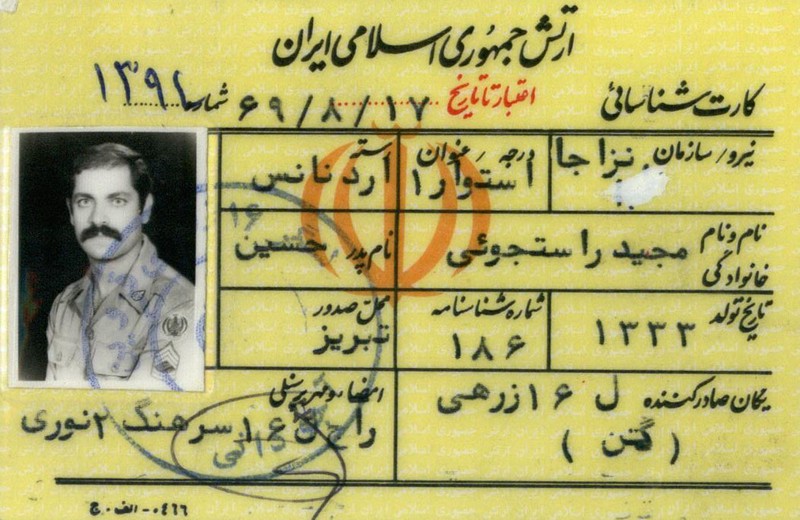 ارتش جمهوری اسلامی ایران
کارت شناسائی اعتبار تا تاریخ ۶۹/۸/۱۷ شماره ۱۳۹۱
نیرو/سازمان نزاجا درجه/عنوان استوار۱ رسته اردنانس
نام و نام خانوادگی مجید راستجوئی نام پدر حسین
تاریخ تولد ۱۳۳۳ شماره شناسنامه ۱۸۶ محل صدور تبریز
یکان صادرکننده ل ۱۶ زرهی امضاء و مهر پرسنلی
سرهنگ ۲ نوری
۰۴۶۶-الف-ج